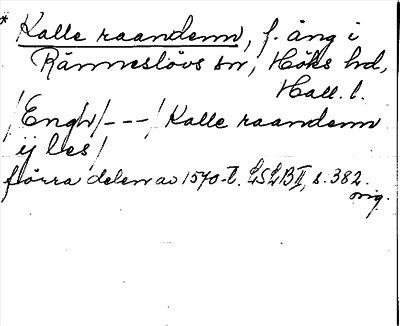 * Kalle raandenn, f. äng i
Ränneslövs sn, Höks hd,
Hall. l.
/Engh/ - - - / Kalle raandenn
ij les /
förra delen av 1570-t. LSLB II, s. 382.
orig.